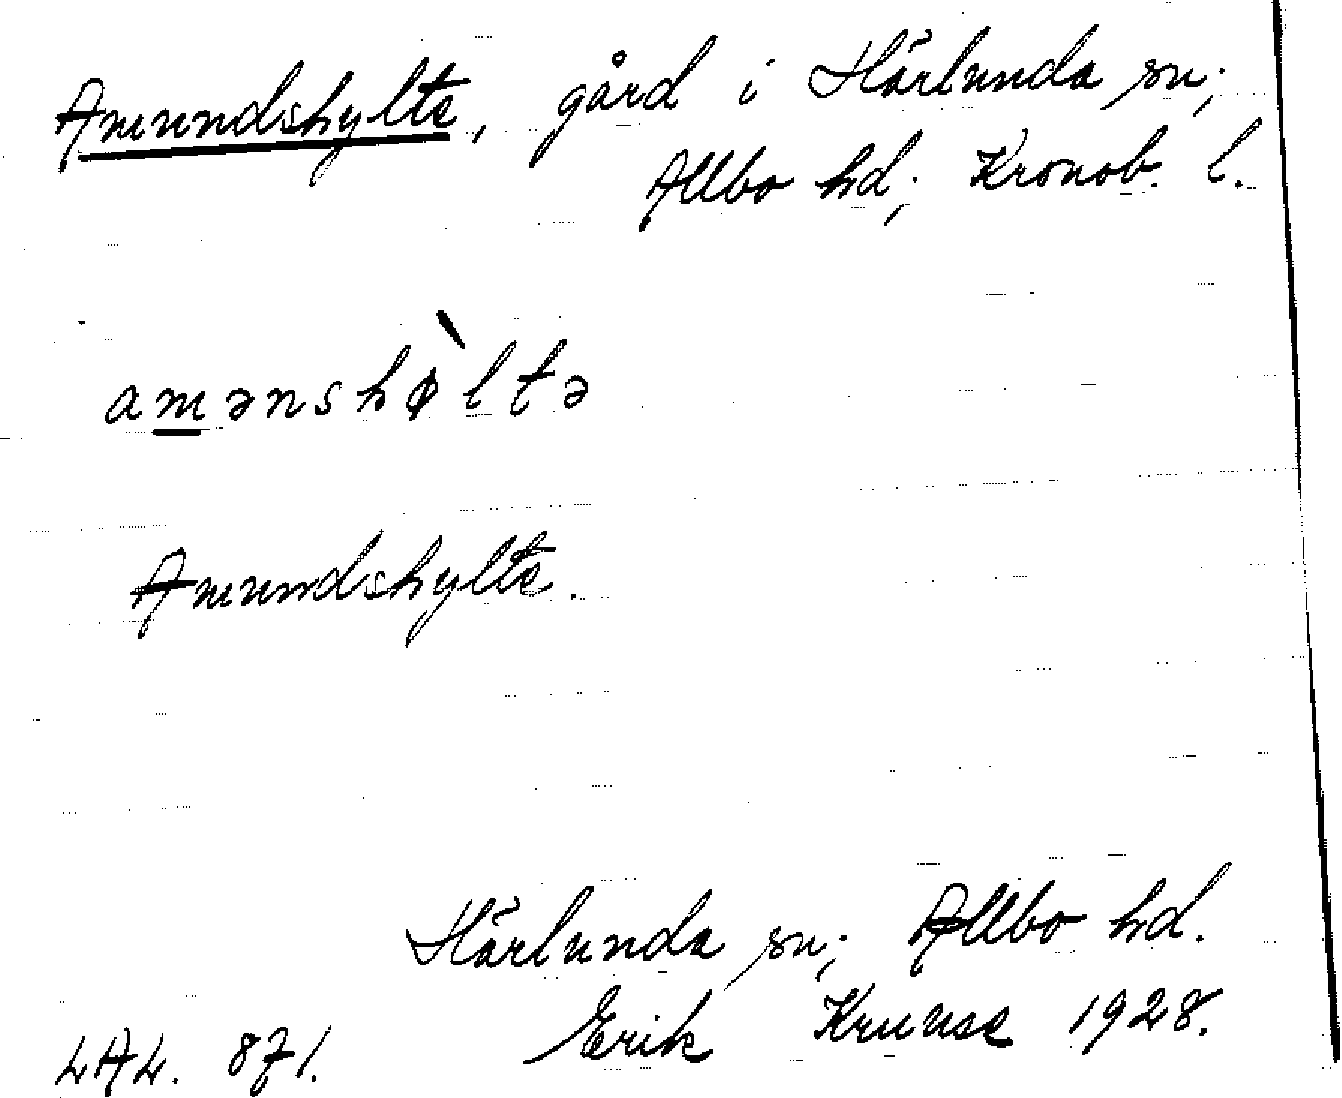 Amundshylte, gård i Härlunda sn;
Allbo hd; Kronob. l.
amənshø̀ltə
Amundshylte.
Härlunda sn; Allbo hd.
Erik Kruuse 1928.
LAL. 871.